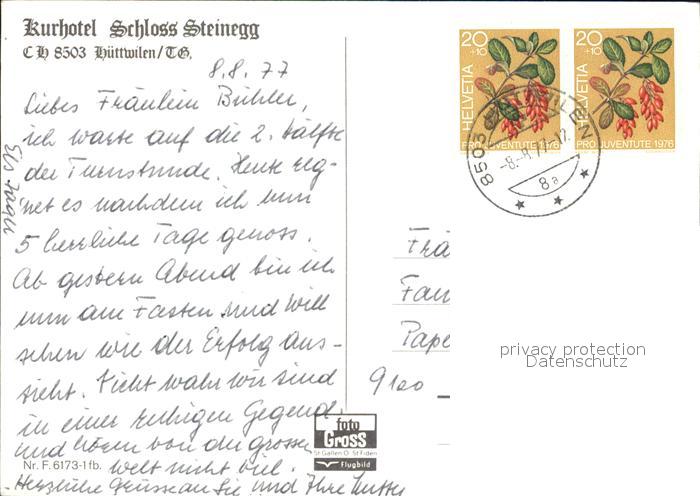 Kurhotel Schloss Steinegg
CH 8503 Hüttwilen/TG.
8.8.77
Liebes Fräulein Bühler,
ich warte auf die 2. Hälfte
der Turnstunde. Heute reg-
net es nachdem ich nun
5 herrliche Tage genoss.
Ab gestern Abend bin ich
nun am Fasten und will
sehen wie der Erfolg aus-
sieht. Nicht wahr wir sind
in einer ruhigen Gegend,
und hören von der grossen
Welt nicht viel.
Herzliche Grüsse an Sie und Ihre Mutter
Nr. F. 6173-1fb.
foto
GROSS
St Gallen O. St Fiden
Flugbild
20
+10
HELVETIA
PRO JUVENTUTE 1976
20
+10
HELVETIA
PRO JUVENTUTE 1976
8503
-8.-8.77.-12
8a
Frä
Fan
Pape
9100
privacy protection
Datenschutz